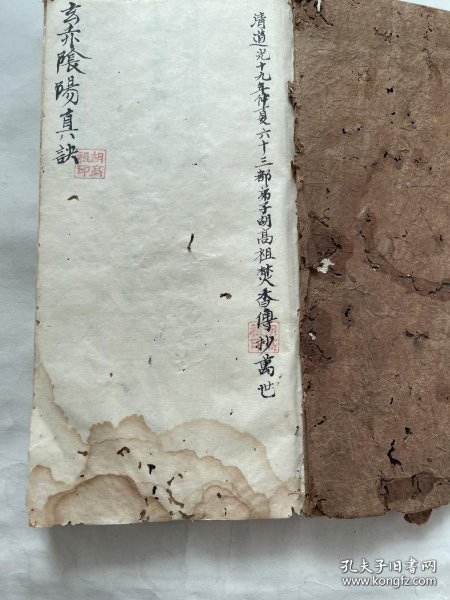 清道光十九年仲夏六十三都弟子胡高祖焚香傳抄萬世
玄赤陽真訣
胡高祖印
孔夫子旧书网
www.kongfz.com